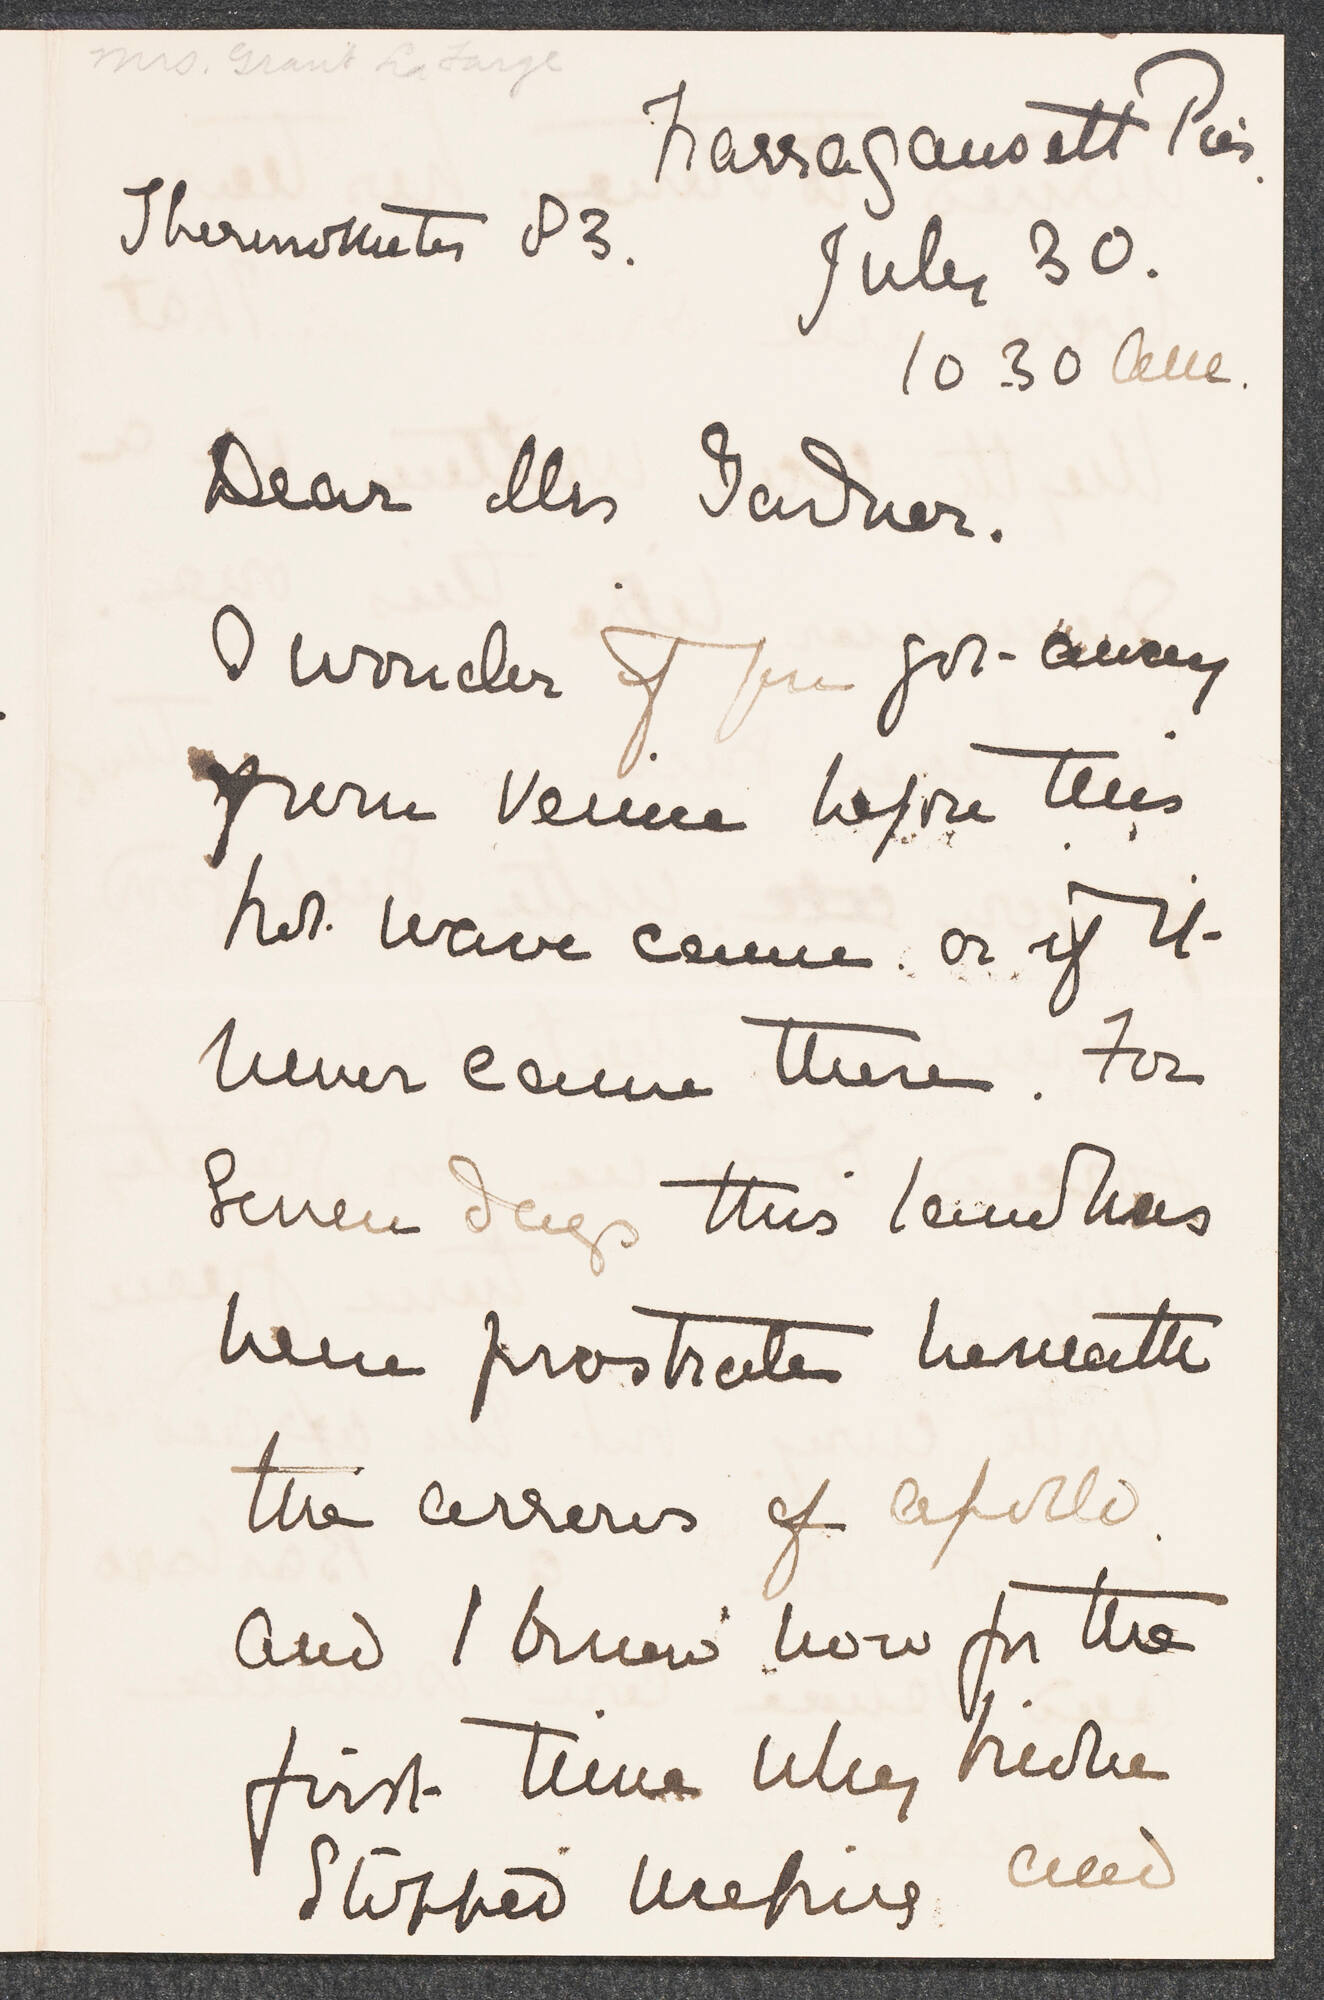 Mrs. Grant La Farge
Narragansett Pier.
Thermometer 83.
July 30.
10 30 am.
Dear Mrs Gardner.
I wonder if you got away
from Venice before this
hot wave came. or if it
never came there. For
Seven days this land has
been prostrate beneath
the arrows of apollo.
and I know now for the
first time why Niobe
Stopped weeping and